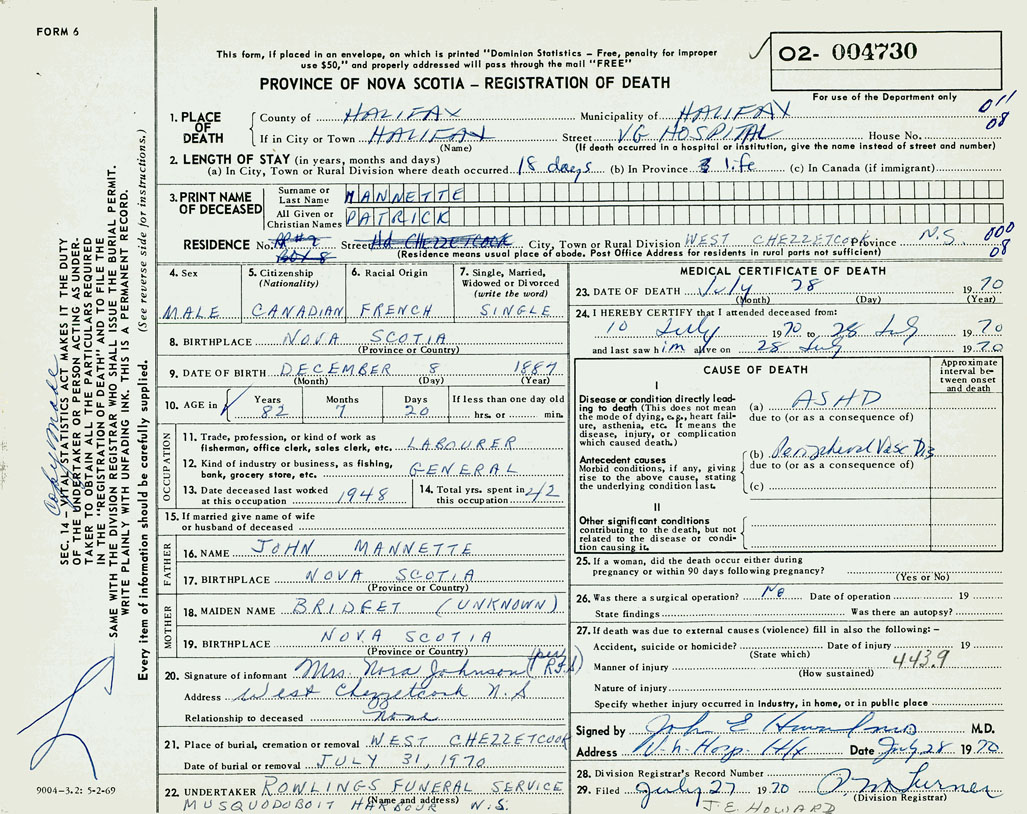 FORM 6
This form, if placed in an envelope, on which is printed "Dominion Statistics – Free, penalty for improper
use $50," and properly addressed will pass through the mail "FREE"
O2- 004730
For use of the Department only
PROVINCE OF NOVA SCOTIA – REGISTRATION OF DEATH
011
08
1. PLACE OF DEATH
County of HALIFAX Municipality of HALIFAX
If in City or Town HALIFAX Street V.G HOSPITAL House No.
(Name) (If death occurred in a hospital or institution, give the name instead of street and number)
2. LENGTH OF STAY (in years, months and days)
(a) In City, Town or Rural Division where death occurred 18 days (b) In Province life (c) In Canada (if immigrant)
3. PRINT NAME OF DECEASED
Surname or Last Name MANNETTE
All Given or Christian Names PATRICK
RESIDENCE No. RR#2 Street Hd CHEZZETCOOK City, Town or Rural Division WEST CHEZZETCOOK Province N.S. 000
BOX 8 (Residence means usual place of abode. Post Office Address for residents in rural parts not sufficient) 08
4. Sex MALE
5. Citizenship (Nationality) CANADIAN
6. Racial Origin FRENCH
7. Single, Married, Widowed or Divorced (write the word) SINGLE
8. BIRTHPLACE NOVA SCOTIA
(Province or Country)
9. DATE OF BIRTH DECEMBER 8 1887
(Month) (Day) (Year)
10. AGE in Years 82 Months 7 Days 20 If less than one day old hrs. or min.
OCCUPATION
11. Trade, profession, or kind of work as fisherman, office clerk, sales clerk, etc. LABOURER
12. Kind of industry or business, as fishing, bank, grocery store, etc. GENERAL
13. Date deceased last worked at this occupation 1948
14. Total yrs. spent in this occupation 42
15. If married give name of wife or husband of deceased
FATHER
16. NAME JOHN MANNETTE
17. BIRTHPLACE NOVA SCOTIA
(Province or Country)
MOTHER
18. MAIDEN NAME BRIDFET (UNKNOWN)
19. BIRTHPLACE NOVA SCOTIA
(Province or Country)
20. Signature of informant Mrs. Nora Johnson (per R.F.S)
Address West Chezzetcook N.S
Relationship to deceased None
21. Place of burial, cremation or removal WEST CHEZZETCOOK
Date of burial or removal JULY 31, 1970
22. UNDERTAKER ROWLINGS FUNERAL SERVICE
(Name and address)
MUSQUODOBOIT HARBOUR N.S.
MEDICAL CERTIFICATE OF DEATH
23. DATE OF DEATH July 28 1970
(Month) (Day) (Year)
24. I HEREBY CERTIFY that I attended deceased from:
10 July 1970 to 28 July 1970
and last saw him alive on 28 July 1970
CAUSE OF DEATH
Approximate interval between onset and death
I
Disease or condition directly leading to death (This does not mean the mode of dying, e.g., heart failure, asthenia, etc. It means the disease, injury, or complication which caused death.)
(a) ASHD
due to (or as a consequence of)
Antecedent causes
Morbid conditions, if any, giving rise to the above cause, stating the underlying condition last.
(b) Peripheral Vasc Dis
due to (or as a consequence of)
(c)
II
Other significant conditions
contributing to the death, but not related to the disease or condition causing it.
25. If a woman, did the death occur either during pregnancy or within 90 days following pregnancy?
(Yes or No)
26. Was there a surgical operation? No Date of operation 19
State findings Was there an autopsy?
27. If death was due to external causes (violence) fill in also the following: –
Accident, suicide or homicide? Date of injury 19
(State which) 443.9
Manner of injury
(How sustained)
Nature of injury
Specify whether injury occurred in industry, in home, or in public place
Signed by John E M.D.
Address V.G. Hosp. Hfx Date July 28 1970
28. Division Registrar's Record Number
29. Filed July 27 1970
(Division Registrar)
J.E. HOWARD
Copy Made
SEC. 14 – VITAL STATISTICS ACT MAKES IT THE DUTY
OF THE UNDERTAKER OR PERSON ACTING AS UNDER-
TAKER TO OBTAIN ALL THE PARTICULARS REQUIRED
IN THE "REGISTRATION OF DEATH" AND TO FILE THE
SAME WITH THE DIVISION REGISTRAR WHO SHALL ISSUE THE BURIAL PERMIT.
WRITE PLAINLY WITH UNFADING INK. THIS IS A PERMANENT RECORD.
Every item of information should be carefully supplied. (See reverse side for instructions.)
9004-3.2: 5-2-69